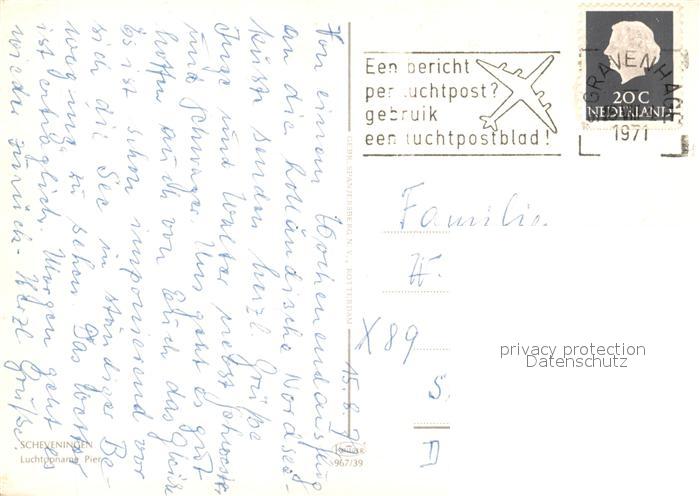 Von einem Wochenendausflug
an die holländische Nordsee-
küste senden herzl. Grüße
Inge und Walter nebst Schwester
und Schwager. Uns geht es gut
hoffen auch von Euch das Gleiche
Es ist schon imponierend vor
sich die See in ständiger Be-
wegung zu sehen. Das Wetter
ist erträglich. Morgen geht es
wieder zurück. Herzl. Grüße.
15.8.71
SCHEVENINGEN
Luchtopname Pier
GEBR. SPANJERSBERG N.V., ROTTERDAM
967/39
Een bericht
per luchtpost?
gebruik
een luchtpostblad!
'S GRAVENHAGE
1971
20C
NEDERLAND
Familie
H.
X 89
S.
D
privacy protection
Datenschutz